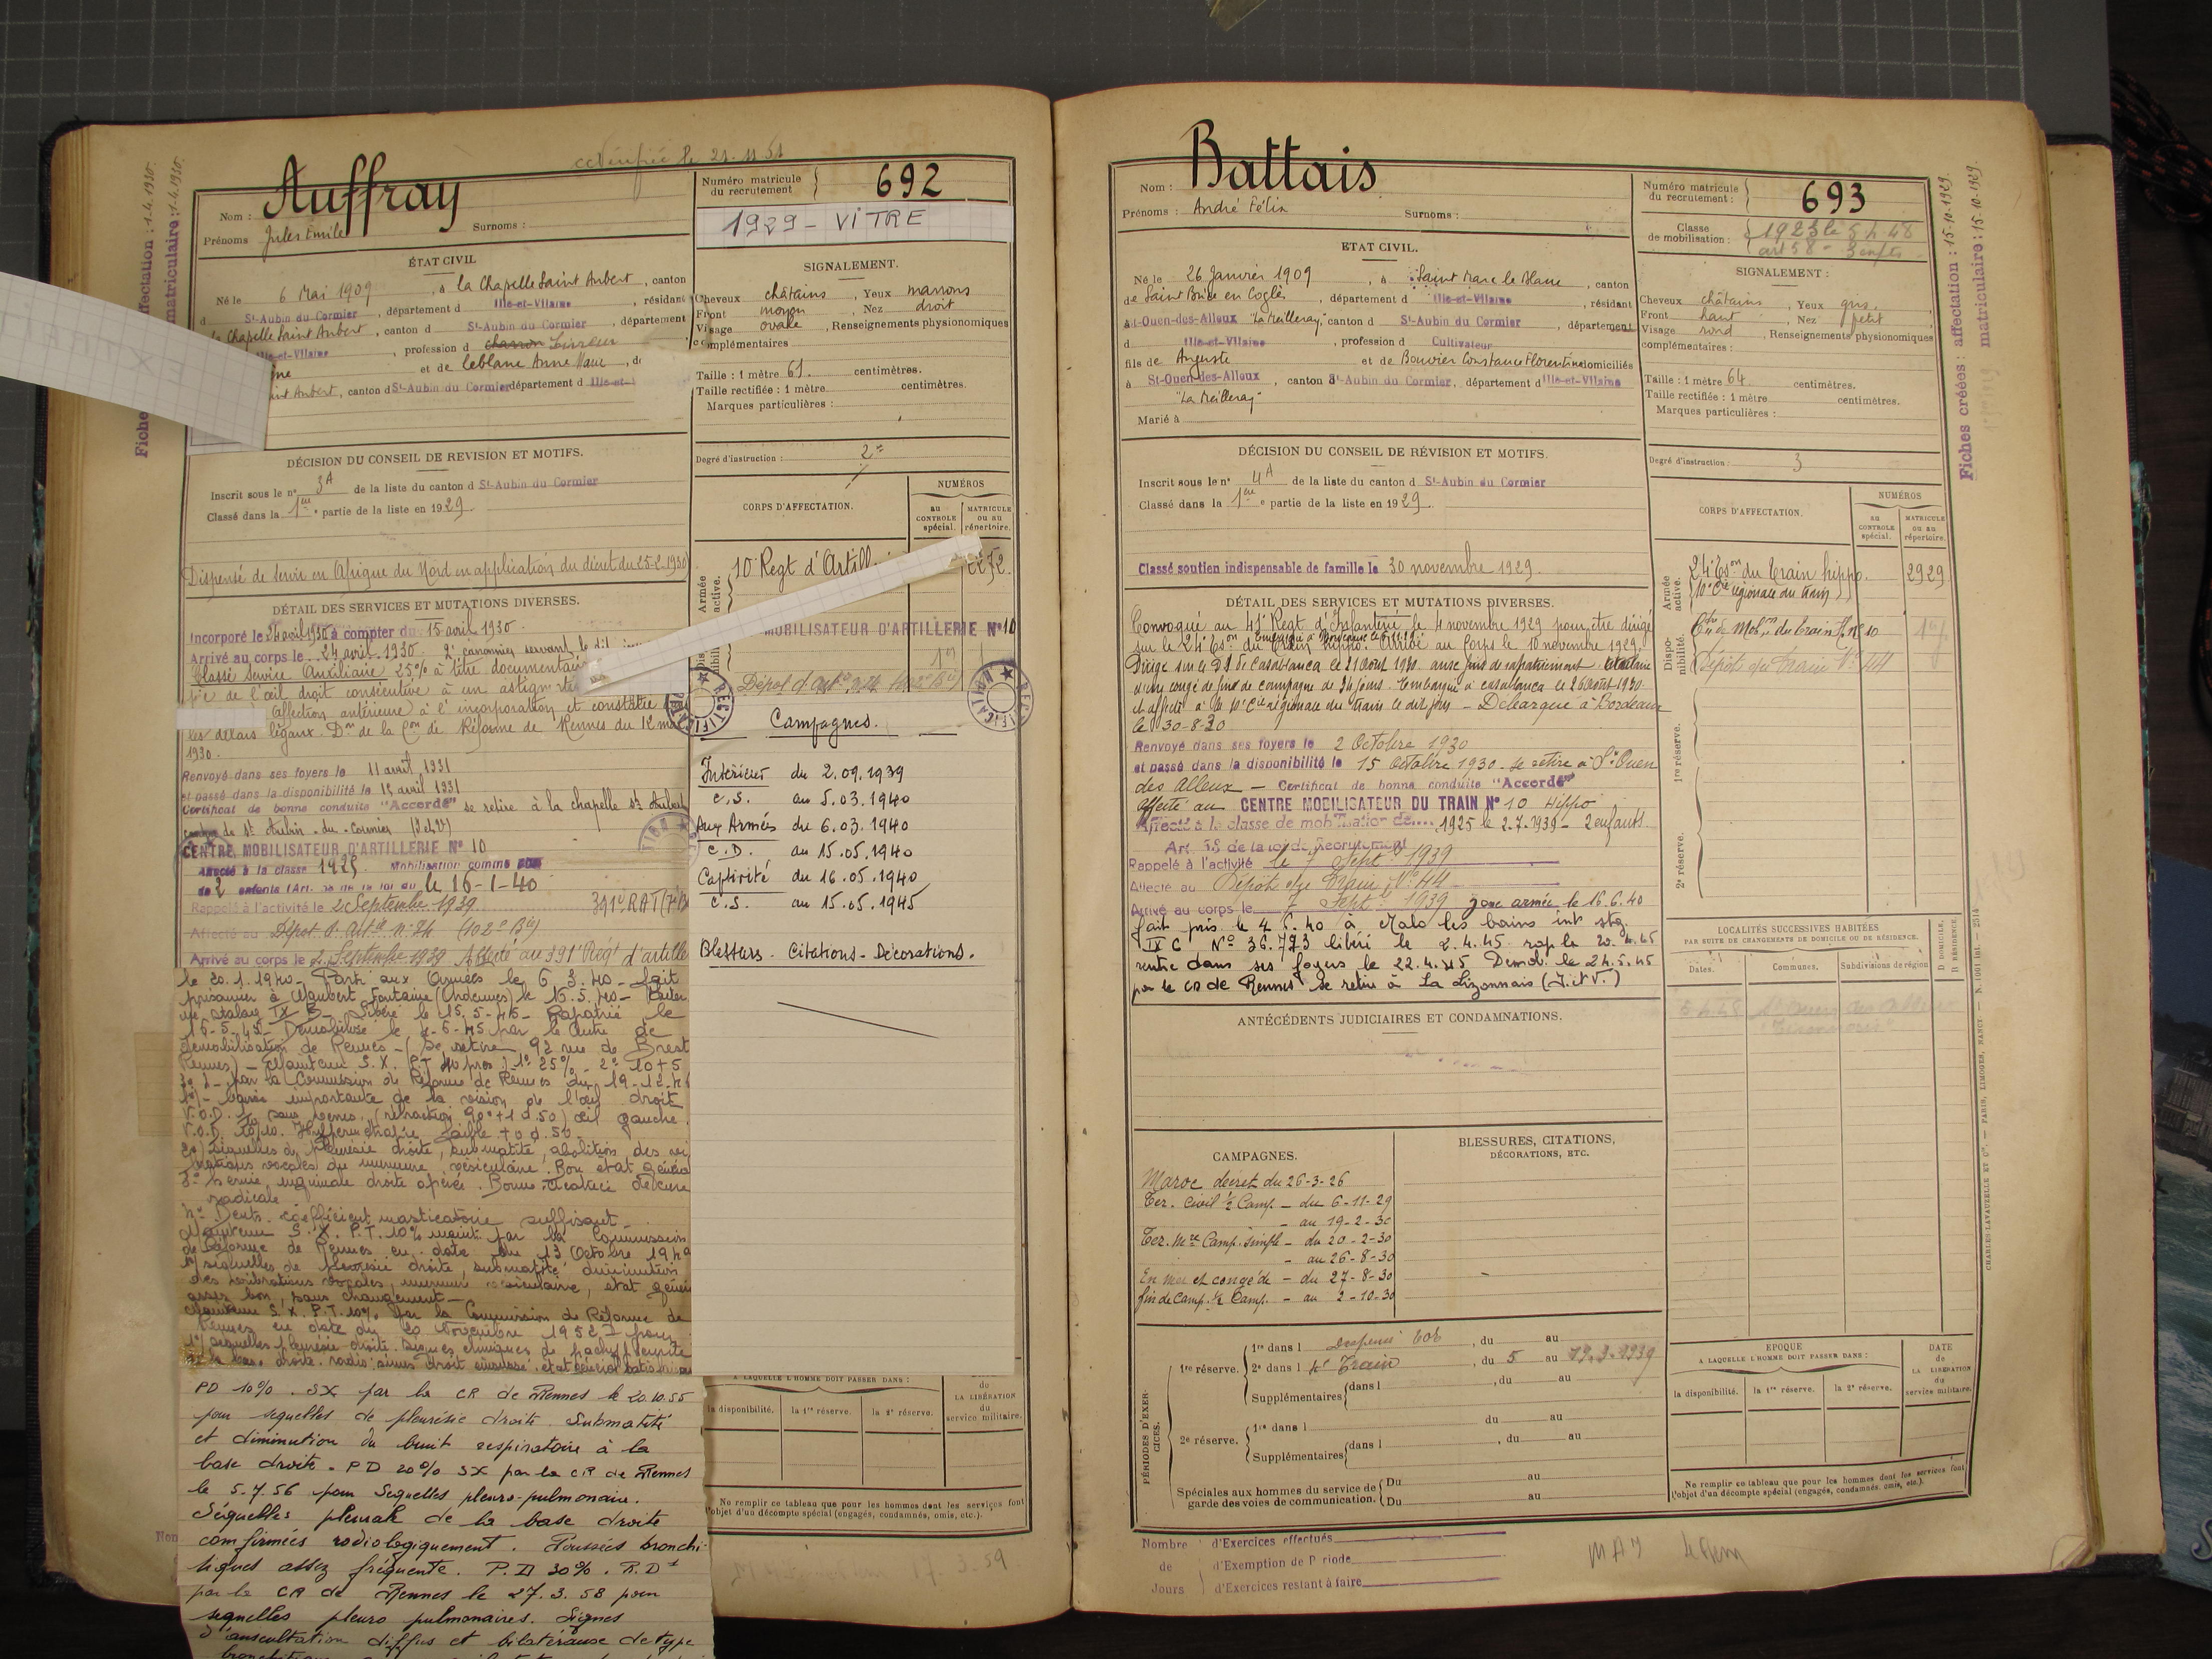 Vérifiée le 21-11-51
Fiches
affectation : 1-4-1930.
matriculaire : 1-4-1930.
Nom : Auffray
Prénoms Jules Emile Surnoms :
Numéro matricule du recrutement 692
1929 - VITRE
ÉTAT CIVIL
Né le 6 Mai 1909, à la Chapelle Saint Aubert, canton
d St-Aubin du Cormier, département d Ille-et-Vilaine, résidant
la Chapelle Saint Aubert, canton d St-Aubin du Cormier, département
Ille-et-Vilaine, profession d
et de Leblanc Anne Marie, d
int Aubert, canton d St-Aubin du Cormier département d Ille-et-
SIGNALEMENT.
Cheveux châtains, Yeux marrons
Front moyen, Nez droit
Visage ovale, Renseignements physionomiques
complémentaires
Taille : 1 mètre 61. centimètres.
Taille rectifiée : 1 mètre centimètres.
Marques particulières :
Degré d'instruction : 2
DÉCISION DU CONSEIL DE REVISION ET MOTIFS.
Inscrit sous le n° 3A de la liste du canton d St-Aubin du Cormier
Classé dans la 1ère partie de la liste en 1929.
Dispensé de servir en Afrique du Nord en application du décret du 25-2-1930
CORPS D'AFFECTATION.
NUMÉROS
au CONTROLE spécial.
MATRICULE ou au répertoire.
Armée active.
10 Regt d'Artill
MOBILISATEUR D'ARTILLERIE N° 10
DÉTAIL DES SERVICES ET MUTATIONS DIVERSES.
Incorporé le 24 avril 1930 à compter du 15 avril 1930.
Arrivé au corps le 24 avril 1930. 2e canonnier servant le dit jour
Classé Service Auxiliaire 25% à titre documentaire
pie de l'œil droit consécutive à un astig
(affection antérieure à l'incorporation et constatée
les délais légaux. Don de la Con de Réforme de Rennes du 12 mai
1930.
Renvoyé dans ses foyers le 11 avril 1931
et passé dans la disponibilité le 15 avril 1931
Certificat de bonne conduite "Accordé" se retire à la chapelle St Aubert
canton de St Aubin-du-Cormier (I et V)
CENTRE MOBILISATEUR D'ARTILLERIE N° 10
Affecté à la classe 1925 Mobilisation comme
de 2 enfants le 16-1-40
Rappelé à l'activité le 2 Septembre 1939 391e RAT
Affecté au Dépôt d'Artie n° 24 (102e Bie)
Arrivé au corps le 2 Septembre 1939 Affecté au 391e Régt d'artille
le 20.1.1940- Parti aux Armées le 6 3.40- Fait
prisonnier à Maubert Fontaine (Ardennes) le 16.5.40-
au Stalag IX B- Libéré le 15-5-45- Rapatrié le
16-5-45- Démobilisé le 4-6-45 par le centre de
démobilisation de Rennes - (Se retire 92 rue de Brest
Rennes) - Maintenu S.X. (P.T. 40 pros) 1° 25% - 2° 10+5
par la Commission de Réforme de Rennes du 19-12-4
1°) - baisse importante de la vision de l'œil droit
V.O.D. sans verres (réfraction 90°+1 d.50) œil gauche
V.O.D. 10/10. Hypermétropie faible +0 d.50-
2°) Séquelles de pleurésie droite, submatité, abolition des vi
brations vocales du murmure vésiculaire. Bon état généra
3° hernie inguinale droite opérée. Bonne cicatrice de cure
radicale
4° Dents. coefficient masticatoire suffisant-
Maintenu S.X. P.T. 10% maint. par la Commission
de Réforme de Rennes en date du 13 Octobre 1949
1° séquelles de pleurésie droite, submatité diminution
des vibrations vocales, murmure vésiculaire, état génér
assez bon, sans changement-
Maintenu S.X. P.T. 10% par la Commission de Réforme de
Rennes en date du 20 Novembre 1952 pour
1°) séquelles pleurésie droite. Signes cliniques de pachypleurite
PD 10%. SX par la CR de Rennes le 20.10.55
pour sequelles de pleurésie droite. Submatité
et diminution du bruit respiratoire à la
base droite. PD 20% SX par la CR de Rennes
le 5.7.56 pour Sequelles pleuro-pulmonaire.
Séquelles pleurale de la base droite
confirmées radiologiquement. Poussées bronchi-
tiques assez fréquente. P.D 30%. R.Dt
par la CR de Rennes le 27.3.58 pour
séquelles pleuro pulmonaires. Signes
d'auscultation diffus et bilatéraux de type
Campagnes.
Intérieur du 2.09.1939
C.S. au 5.03.1940
Aux Armées du 6.03.1940
C.D. au 15.05.1940
Captivité du 16.05.1940
C.S. au 15.05.1945
Blessures - Citations - Décorations.
A LAQUELLE L'HOMME DOIT PASSER DANS :
la disponibilité.
la 1re réserve.
la 2e réserve.
du LA LIBÉRATION du service militaire.
Ne remplir ce tableau que pour les hommes dont les services font
l'objet d'un décompte spécial (engagés, condamnés, omis, etc.).
Nom : Battais
Prénoms : André Félix Surnoms :
Numéro matricule du recrutement : 693
Classe de mobilisation : 1923 le 5 4.48
art 58 - 3 enfts
Fiches créées : affectation : 15-10-1929.
matriculaire : 15-10-1929.
ETAT CIVIL.
Né le 26 Janvier 1909, à Saint Marc le Blanc, canton
de Saint Brice en Coglès, département d Ille-et-Vilaine, résidant
à St-Ouen-des-Alleux "La Meilleray", canton d St-Aubin du Cormier, département
d Ille-et-Vilaine, profession d Cultivateur
fils de Auguste et de Bouvier Constance Florentine domiciliés
à St-Ouen-des-Alleux, canton d St-Aubin du Cormier, département d Ille-et-Vilaine
"La Meilleray"
Marié à
SIGNALEMENT :
Cheveux châtains, Yeux gris,
Front haut, Nez petit
Visage rond, Renseignements physionomiques
complémentaires :
Taille : 1 mètre 64. centimètres.
Taille rectifiée : 1 mètre centimètres.
Marques particulières :
Degré d'instruction : 3
DÉCISION DU CONSEIL DE RÉVISION ET MOTIFS.
Inscrit sous le n° 4A de la liste du canton d St-Aubin du Cormier
Classé dans la 1ère partie de la liste en 1929.
Classé soutien indispensable de famille le 30 novembre 1929.
CORPS D'AFFECTATION.
NUMÉROS
au CONTROLE spécial.
MATRICULE ou au répertoire.
Armée active.
24e Eson du Train hippo. 2929
10e Cie régionale du train
Disponibilité.
Ctre de Mobon du Train N° 10
Dépôt du Train N° 44
1re réserve.
2e réserve.
DÉTAIL DES SERVICES ET MUTATIONS DIVERSES.
Convoqué au 41e Regt d'Infanterie le 4 novembre 1929 pour être dirigé
sur le 24e Eson du Train hippo. Arrivé au Corps le 10 novembre 1929.
Dirigé sur le D.I. de Casablanca le 21 Aout 1930 aux fins de rapatriement titulaire
d'un congé de fin de campagne de 34 jours. Embarqué à Casablanca le 26 Aout 1930.
et affecté à la 10e Cie régionale du train le dit jour - Débarqué à Bordeaux
le 30-8-30
Renvoyé dans ses foyers le 2 Octobre 1930
et passé dans la disponibilité le 15 Octobre 1930. se retire à St Ouen
des Alleux - Certificat de bonne conduite "Accordé"
Affecté au CENTRE MOBILISATEUR DU TRAIN N° 10 Hippo
Affecté à la classe de mobilisation de 1925 le 2.7.1939 - 2 enfants.
Art. 58 de la loi de recrutement
Rappelé à l'activité le 7 Septe 1939
Affecté au Dépôt du Train N° 44
Arrivé au corps le 7 Septe 1939 zone armée le 16.6.40
fait pris. le 4 6.40 à Malo les bains int stg.
IX C N° 36.773 libéré le 2.4.45 rap le 20.4.45
rentre dans ses foyers le 22.4.45 Demob. le 24.5.45
par le CD de Rennes se retire à La Lizonnais (I. et V.)
ANTÉCÉDENTS JUDICIAIRES ET CONDAMNATIONS.
LOCALITÉS SUCCESSIVES HABITÉES
PAR SUITE DE CHANGEMENTS DE DOMICILE OU DE RÉSIDENCE.
Dates.
Communes.
Subdivisions de région
D DOMICILE. R RÉSIDENCE
CAMPAGNES.
Maroc décret du 26-3-26
Ter. Civil ½ Camp - du 6-11-29
- au 19-2-30
Ter. Mre Camp. simple - du 20-2-30
- au 26-8-30
En mer et congé de - du 27-8-30
fin de Camp. ½ Camp. - au 2-10-30
BLESSURES, CITATIONS, DÉCORATIONS, ETC.
PÉRIODES D'EXERCICES.
1re réserve.
1re dans l Dispensé, du au
2e dans l 4e Train, du 5 au
Supplémentaires dans l, du au
2e réserve.
1re dans l du au
Supplémentaires dans l, du au
Spéciales aux hommes du service de garde des voies de communication. Du au
Du au
EPOQUE
A LAQUELLE L'HOMME DOIT PASSER DANS :
la disponibilité.
la 1re réserve.
la 2e réserve.
DATE de LA LIBÉRATION du service militaire.
Ne remplir ce tableau que pour les hommes dont les services font
l'objet d'un décompte spécial (engagés, condamnés, omis, etc.).
CHARLES-LAVAUZELLE ET Cie. — PARIS, LIMOGES, NANCY.
Nombre d'Exercices effectués
de d'Exemption de Période
Jours d'Exercices restant à faire